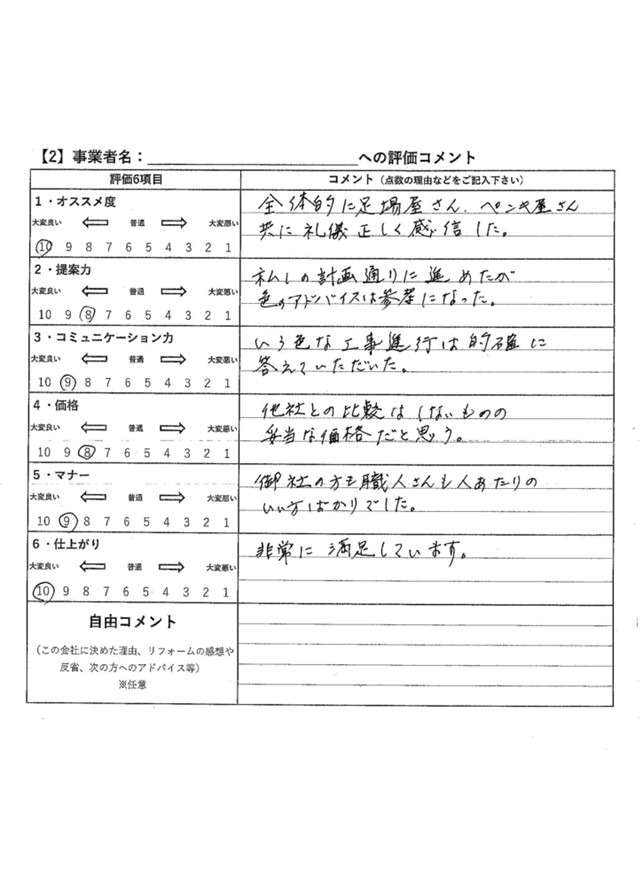 【2】事業者名：＿＿＿＿＿＿＿＿＿＿＿＿＿への評価コメント
評価6項目
コメント（点数の理由などをご記入下さい）
1・オススメ度
大変良い 普通 大変悪い
10 9 8 7 6 5 4 3 2 1
全体的に足場屋さん、ペンキ屋さん
共に礼儀正しく感じ信した。
2・提案力
大変良い 普通 大変悪い
10 9 8 7 6 5 4 3 2 1
私しの計画通りに進めたが
色のアドバイスは参考になった。
3・コミュニケーション力
大変良い 普通 大変悪い
10 9 8 7 6 5 4 3 2 1
いろ色な工事進行は的確に
答えていただいた。
4・価格
大変良い 普通 大変悪い
10 9 8 7 6 5 4 3 2 1
他社との比較はしないものの
妥当な価格だと思う。
5・マナー
大変良い 普通 大変悪い
10 9 8 7 6 5 4 3 2 1
御社の方も職人さんも人あたりの
いい方ばかりでした。
6・仕上がり
大変良い 普通 大変悪い
10 9 8 7 6 5 4 3 2 1
非常に満足しています。
自由コメント
（この会社に決めた理由、リフォームの感想や
反省、次の方へのアドバイス等）
※任意